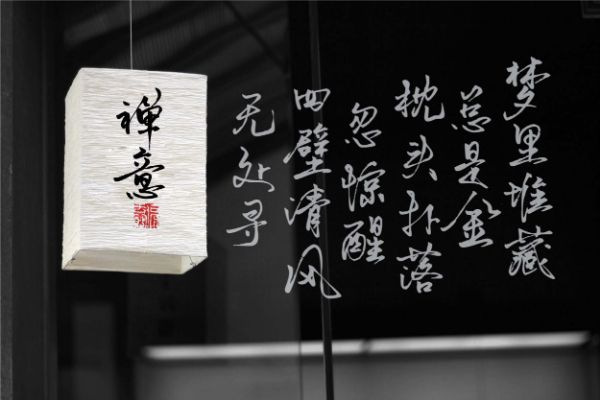 梦里堆藏
总是金
枕头扑落
忽惊醒
四壁清风
无处寻
禅意